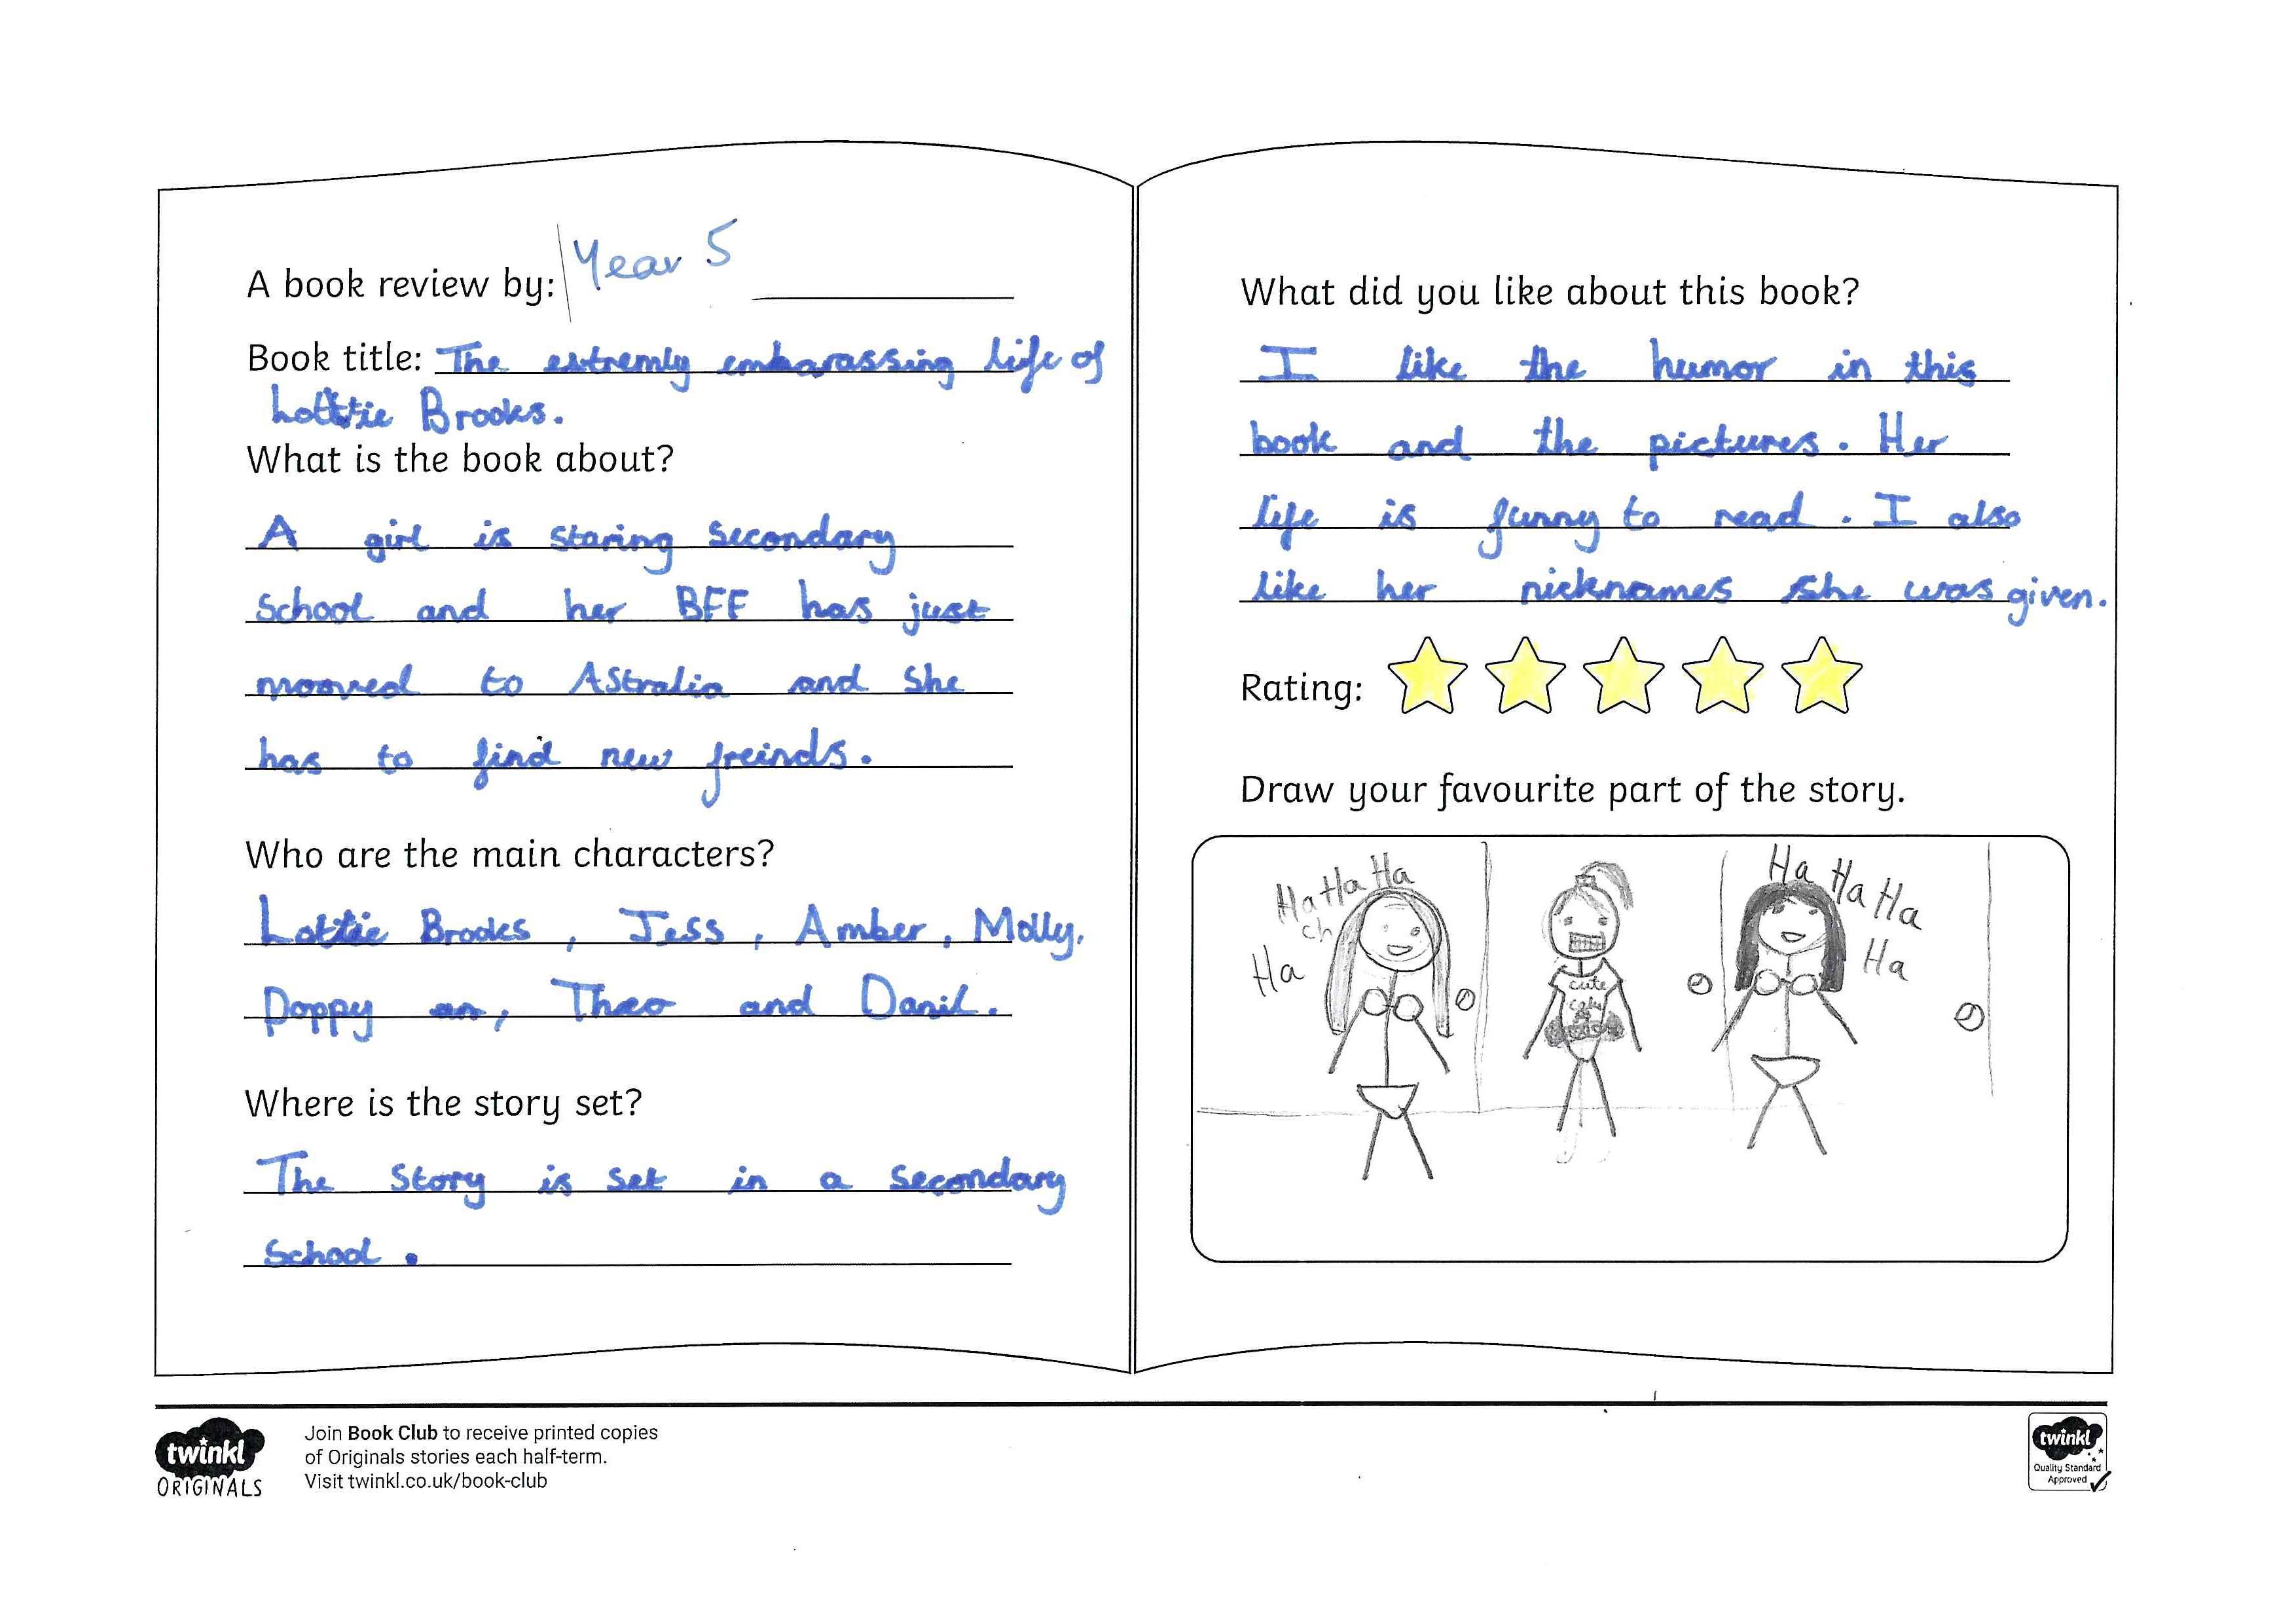 A book review by: Year 5
Book title: The extremly embarassing life of
Lottie Brooks.
What is the book about?
A girl is staring secondary
school and her BFF has just
mooved to Astralia and she
has to find new freinds.
Who are the main characters?
Lottie Brooks, Jess, Amber, Molly,
Poppy an, Theo and Danil.
Where is the story set?
The story is set in a secondary
school.
What did you like about this book?
I like the humor in this
book and the pictures. Her
life is funny to read. I also
like her nicknames she was given.
Rating:
Draw your favourite part of the story.
Ha Ha Ha
Ha
cute
Ha Ha Ha
Ha
twinkl
ORIGINALS
Join Book Club to receive printed copies
of Originals stories each half-term.
Visit twinkl.co.uk/book-club
twinkl
Quality Standard
Approved